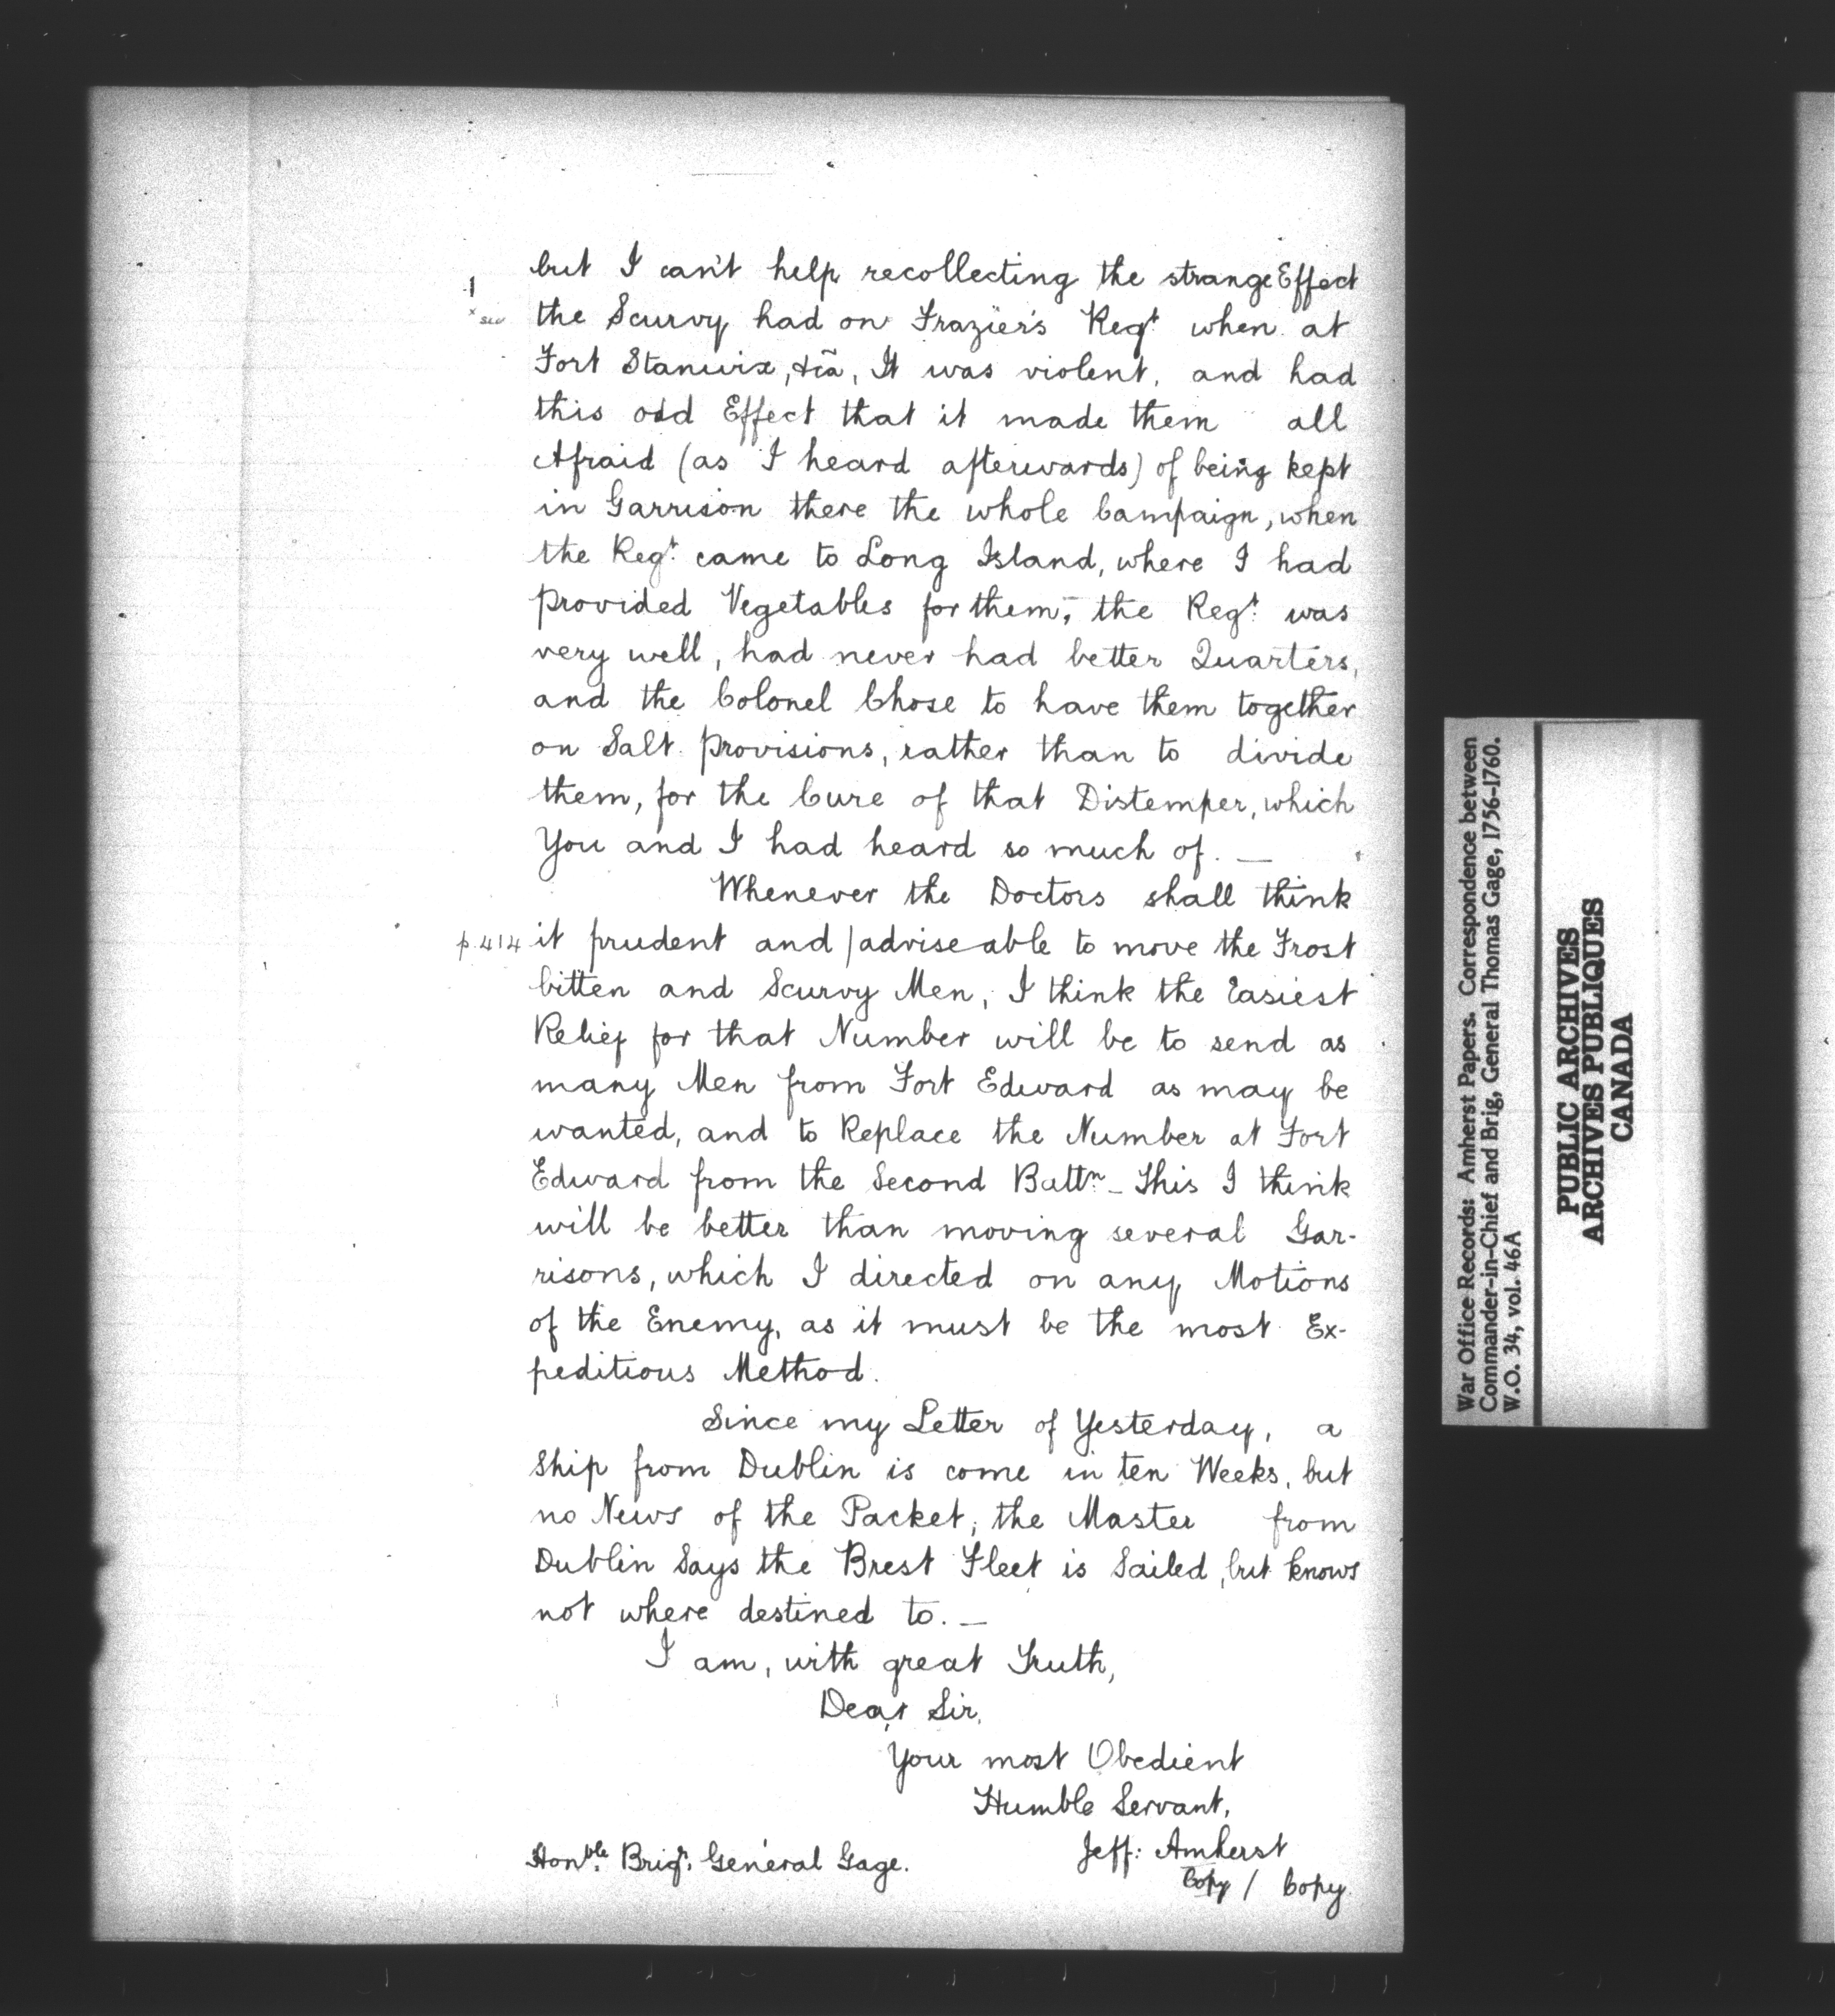 but I can't help recollecting the strange Effect
the Scurvy had on Frazier's Regt when at
Fort Stanwix, &cã, It was violent, and had
this odd Effect that it made them all
Afraid (as I heard afterwards) of being kept
in Garrison there the whole Campaign, when
the Regt. came to Long Island, where I had
provided Vegetables for them, the Regt. was
very well, had never had better Quarters,
and the Colonel Chose to have them together
on Salt provisions, rather than to divide
them, for the Cure of that Distemper, which
You and I had heard so much of. —
Whenever the Doctors shall think
p.414 it prudent and / adviseable to move the Frost
bitten and Scurvy Men, I think the Easiest
Relief for that Number will be to send as
many Men from Fort Edward as may be
wanted, and to Replace the Number at Fort
Edward from the Second Battn — This I think
will be better than moving several Gar-
risons, which I directed on any Motions
of the Enemy, as it must be the most Ex-
peditious Method.
Since my Letter of Yesterday, a
Ship from Dublin is come in ten Weeks, but
no News of the Packet; the Master from
Dublin Says the Brest Fleet is Sailed, but knows
not where destined to. —
I am, with great Truth,
Dear Sir,
Your most Obedient
Humble Servant,
Jeff: Amherst
Honble. Brigr. General Gage.
Copy / Copy
War Office Records: Amherst Papers. Correspondence between
Commander-in-Chief and Brig, General Thomas Gage, 1756-1760.
W.O. 34, vol. 46A
PUBLIC ARCHIVES
ARCHIVES PUBLIQUES
CANADA